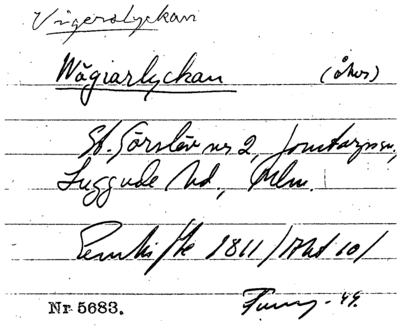 Vägerslyckan
Wägiarlyckan (åker)
St. Görslöv nr 2, Jonstorps sn,
Luggude hd, Mlm.
Enskifte 1811 (Akt 10)
Nr 5683. -49.